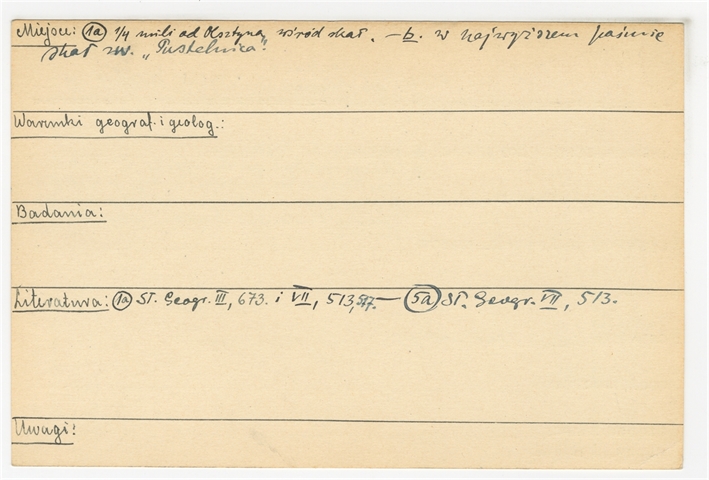 Miejsce: 1a 1/4 mili od Olsztyna, wśród skał. — b. w najwyższem paśmie
skał zw. „Pustelnica".
Warunki geograf. i geolog.:
Badania:
Literatura: 1a Sł. Geogr. III, 673. i VII, 513, 577. — 5a Sł. Geogr. VII, 513.
Uwagi: